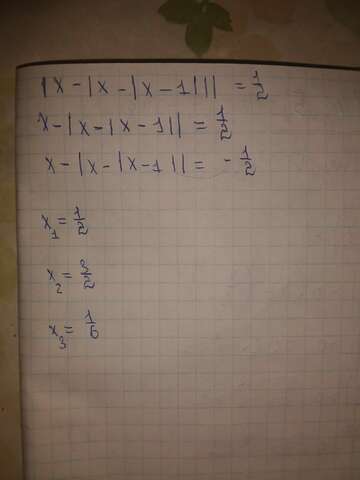 |x-|x-|x-1||| = 1/2
x-|x-|x-1|| = 1/2
x-|x-|x-1|| = -1/2
x₁ = 1/2
x₂ = 3/2
x₃ = 1/6